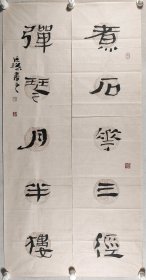 煮石華三徑
彈琴月半樓